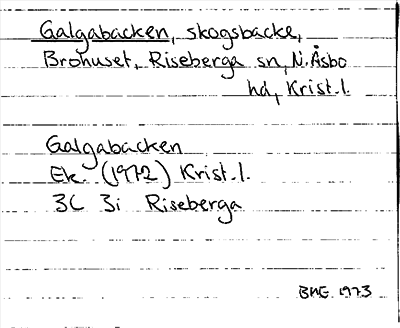 Galgabacken, skogsbacke,
Brohuset, Riseberga sn, N. Åsbo
hd, Krist. l.
Galgabacken
Ek. (1972) Krist. l.
3C 3i Riseberga
BME 1973